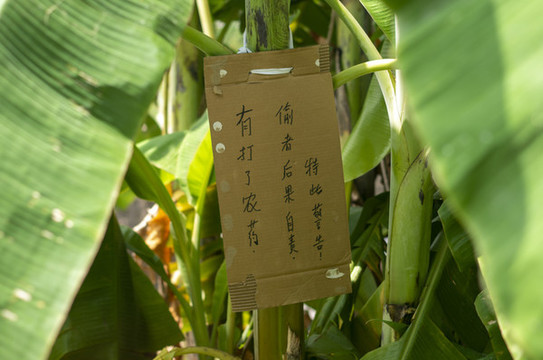 有打了农药.
偷者后果自责.
特此警告!